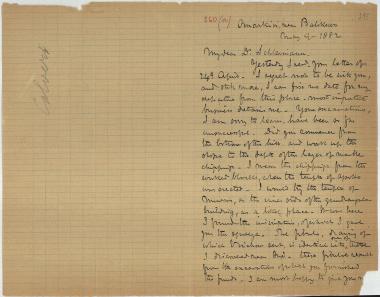 Calvert
260 (61)
Omarkivi, near Balikheser
May 4 1882
My dear Dr. Schliemann
Yesterday I recd. your letter of
24th April. I regret not to be with you,
and still more, I can fix no date for my
departure from this place - most important
business detains me. Your excavations,
I am sorry to learn, have been so far
unsuccessful. Did you commence from
the bottom of the hill, and work up the
slope to the depth of the layer of marble
chippings. I mean the chippings from the
worked blocks, when the temple of Apollo
was erected. I would try the temple of
Minerva, or the inner side of the quadrangular
building, as a better place. It was here
I found the inscription, of which I gave
you the squeeze. The pithoi, drawing of
which Virchow sent, is identical with those
I discovered near Ine. These pithoi result
from the excavations of which you furnished
the funds. I am most happy to give you